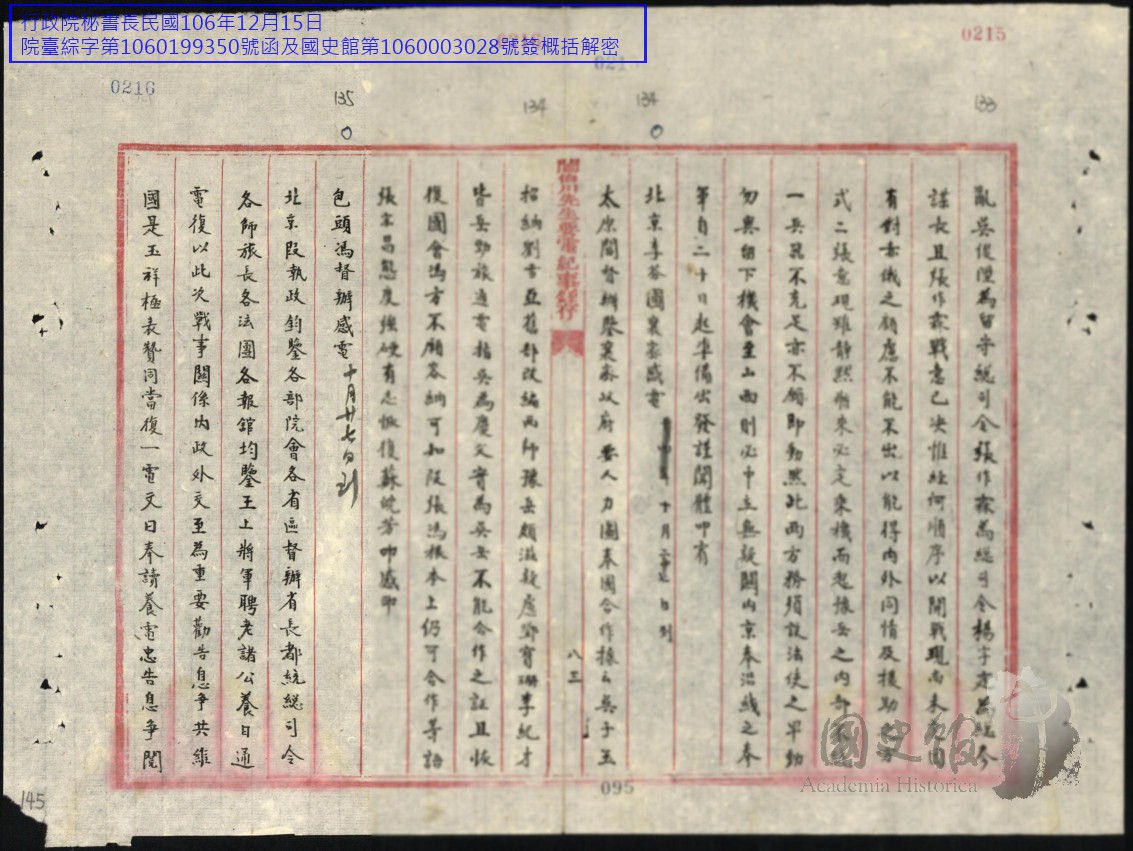 行政院秘書長民國106年12月15日
院臺綜字第1060199350號函及國史館第1060003028號簽概括解密
0215
0216
133
134
134
135
亂吳俊陞為留守總司令張作霖為總司令楊宇霆為總參
謀長且張作霖戰意已決惟經何順序以開戰現尚未
有對赤俄之顧慮不能不出以能得內外同情及援助
式二張意現雖靜默將來必定乘機而起懷岳之內部
一吳兵不充足亦不願即動然此兩方務須設法使之早動
勿與留下機會至山西則必中立無疑關內京奉沿綫之奉
軍自二十日起準備出發謹聞體叩宥
北京李荃國襄密感電 十月 日到
太原閻督辦鑒襄密政府要人力圖奉國合作據云吳子玉
招納劉雪亞舊部改編兩師豫岳頗滋疑慮鄧寶珊李紀才
皆岳勁旅通電指吳為慶父實為吳岳不能合作之証且恢
復國會馮方不願容納可知段張馮根本上仍可合作等語
張宗昌態度強硬有志恢復蘇皖芳叩感印
閻伯川先生要電紀事彙存
八三
包頭馮督辦感電 十月廿七日到
北京段執政鈞鑒各部院會各省區督辦省長都統總司令
各師旅長各法團各報館均鑒王上將軍聘老諸公養日通
電復以此次戰事關係內政外交至為重要勸告息爭共維
國是玉祥極表贊同當復一電文曰奉讀養電忠告息爭閱
095
145
國史館
Academia Historica